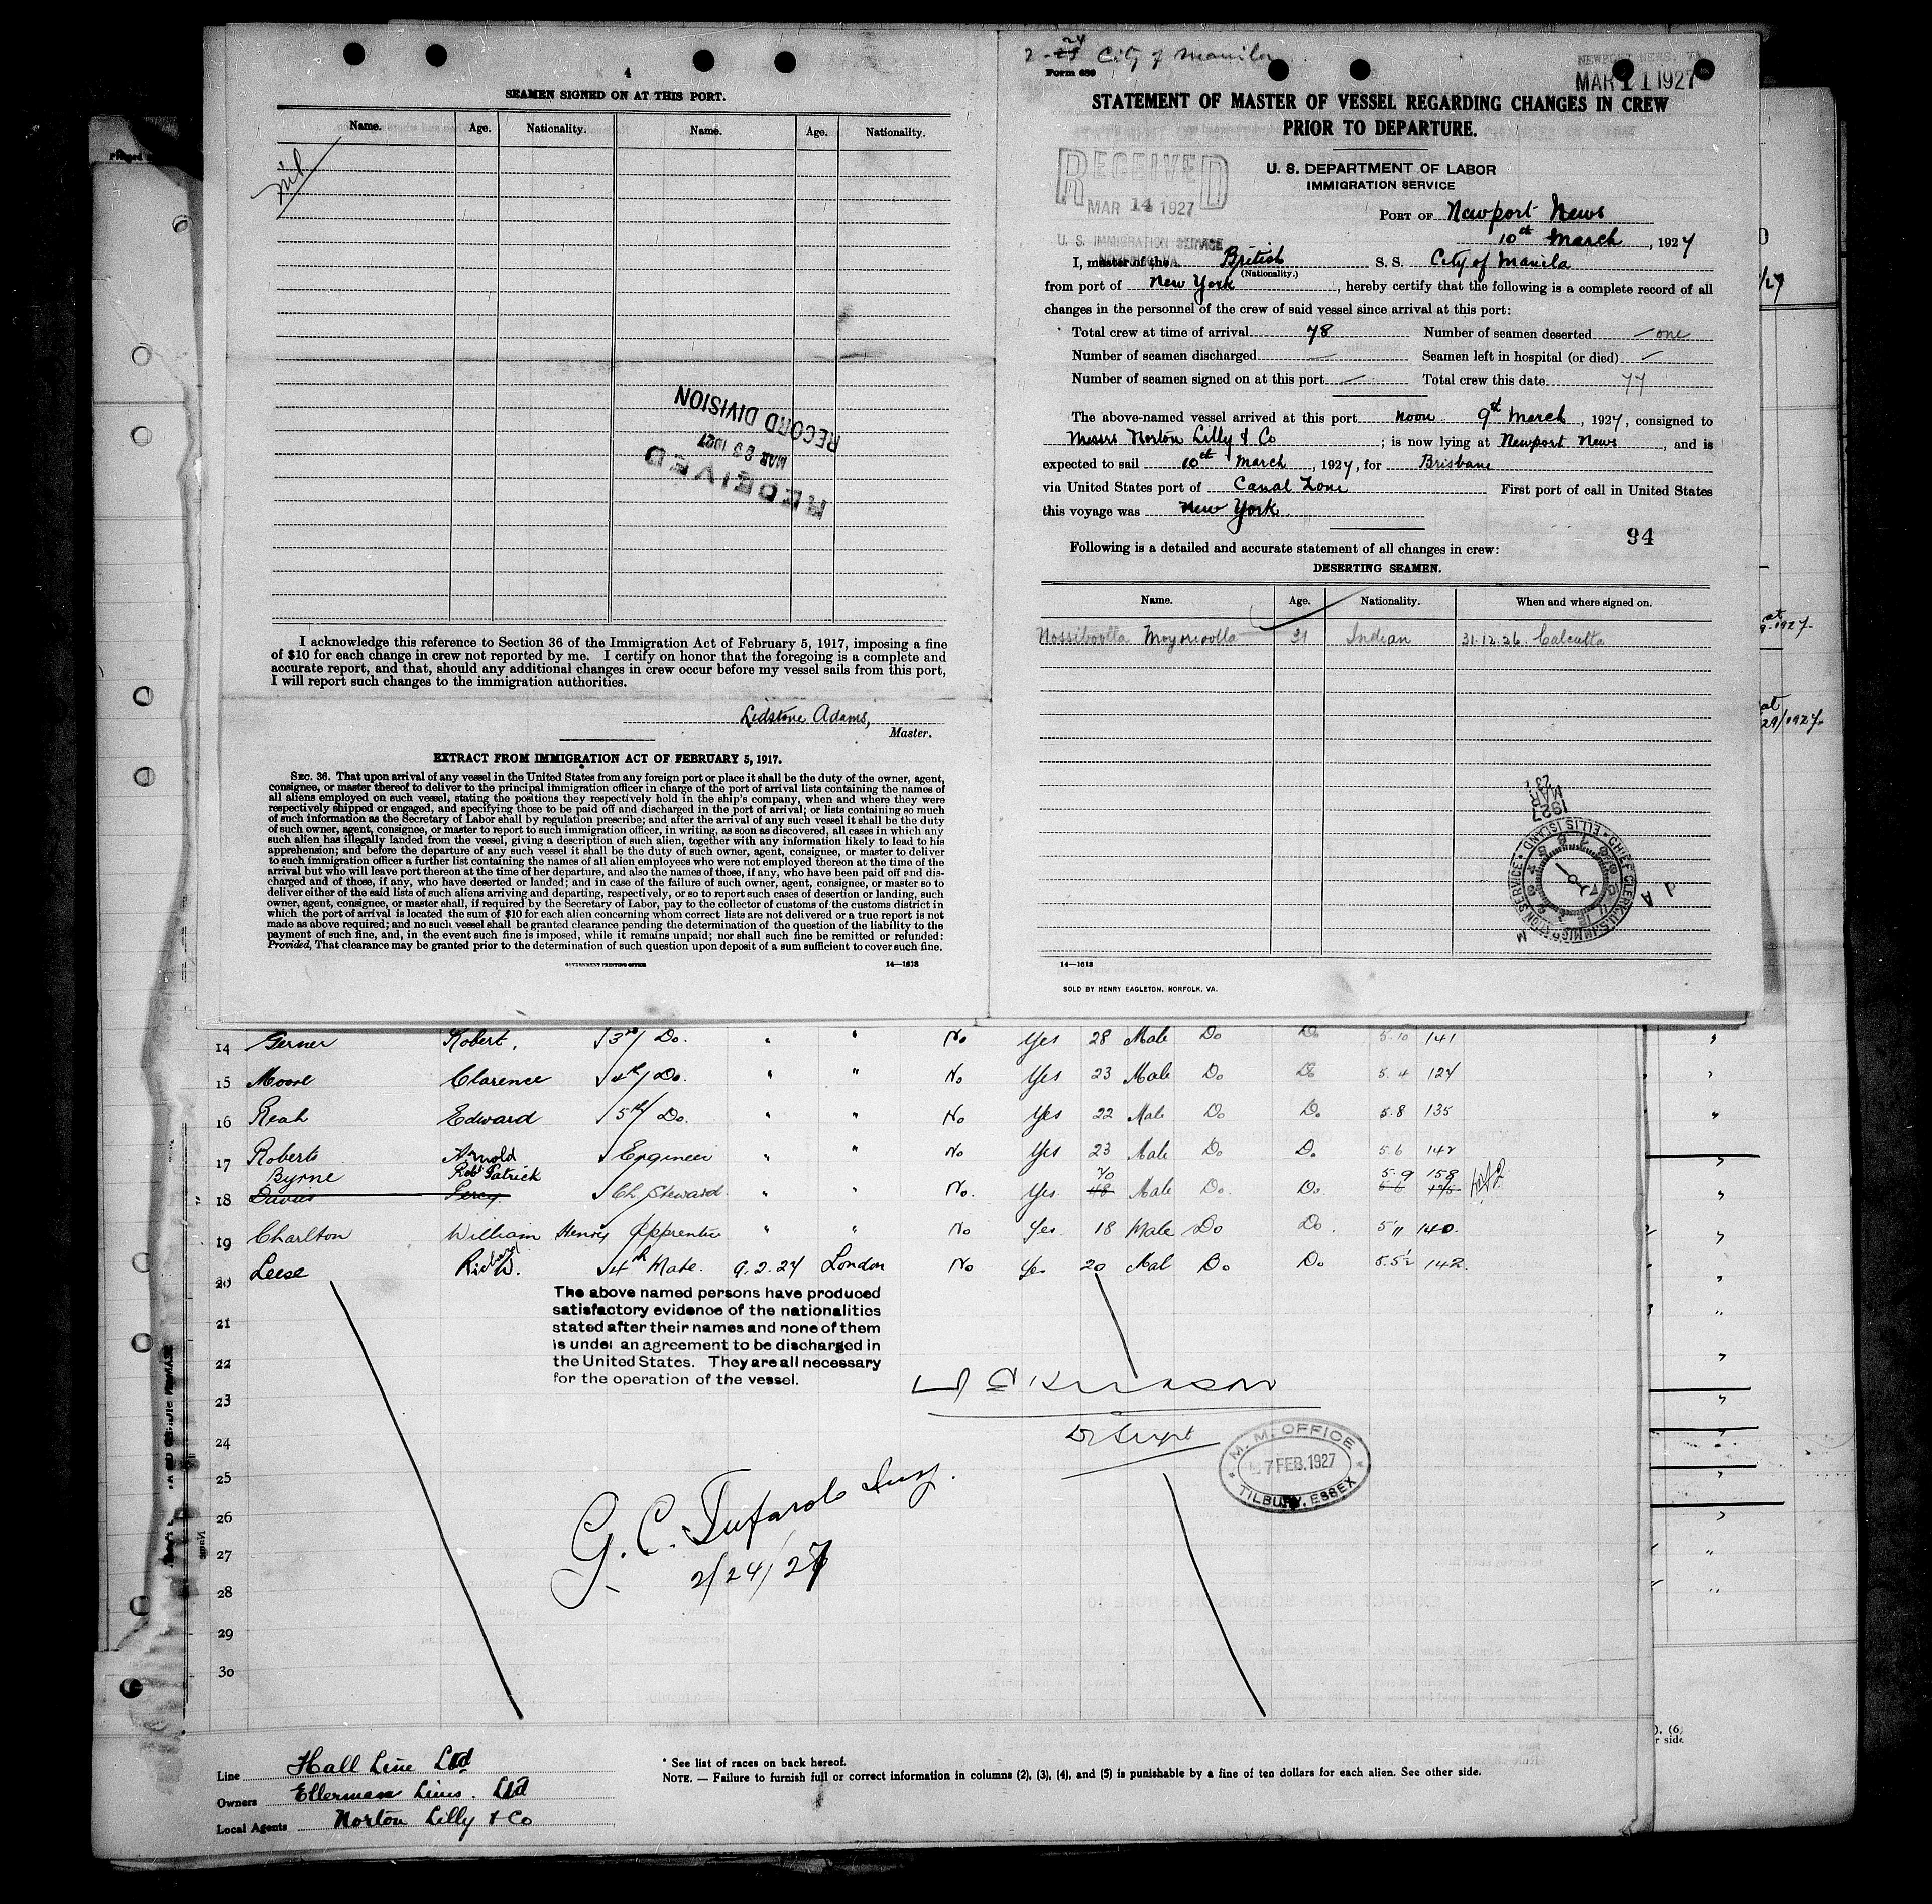 4
SEAMEN SIGNED ON AT THIS PORT.
Name. Age. Nationality. Name. Age. Nationality.
nil
RECORD DIVISION
MAR 23 1927
RECEIVED
I acknowledge this reference to Section 36 of the Immigration Act of February 5, 1917, imposing a fine
of $10 for each change in crew not reported by me. I certify on honor that the foregoing is a complete and
accurate report, and that, should any additional changes in crew occur before my vessel sails from this port,
I will report such changes to the immigration authorities.
Ledstone Adams,
Master.
EXTRACT FROM IMMIGRATION ACT OF FEBRUARY 5, 1917.
SEC. 36. That upon arrival of any vessel in the United States from any foreign port or place it shall be the duty of the owner, agent,
consignee, or master thereof to deliver to the principal immigration officer in charge of the port of arrival lists containing the names of
all aliens employed on such vessel, stating the positions they respectively hold in the ship's company, when and where they were
respectively shipped or engaged, and specifying those to be paid off and discharged in the port of arrival; or lists containing so much
of such information as the Secretary of Labor shall by regulation prescribe; and after the arrival of any such vessel it shall be the duty
of such owner, agent, consignee, or master to report to such immigration officer, in writing, as soon as discovered, all cases in which any
such alien has illegally landed from the vessel, giving a description of such alien, together with any information likely to lead to his
apprehension; and before the departure of any such vessel it shall be the duty of such owner, agent, consignee, or master to deliver
to such immigration officer a further list containing the names of all alien employees who were not employed thereon at the time of the
arrival but who will leave port thereon at the time of her departure, and also the names of those, if any, who have been paid off and dis-
charged and of those, if any, who have deserted or landed; and in case of the failure of such owner, agent, consignee, or master so to
deliver either of the said lists of such aliens arriving and departing, respectively, or so to report such cases of desertion or landing, such
owner, agent, consignee, or master shall, if required by the Secretary of Labor, pay to the collector of customs of the customs district in
which the port of arrival is located the sum of $10 for each alien concerning whom correct lists are not delivered or a true report is not
made as above required; and no such vessel shall be granted clearance pending the determination of the question of the liability to the
payment of such fine, and, in the event such fine is imposed, while it remains unpaid; nor shall such fine be remitted or refunded:
Provided, That clearance may be granted prior to the determination of such question upon deposit of a sum sufficient to cover such fine.
GOVERNMENT PRINTING OFFICE 14—1613
2-24 City of Manila
Form 689
NEWPORT NEWS, VA.
MAR 11 1927
STATEMENT OF MASTER OF VESSEL REGARDING CHANGES IN CREW
PRIOR TO DEPARTURE.
RECEIVED
MAR 14 1927
U. S. IMMIGRATION SERVICE
U. S. DEPARTMENT OF LABOR
IMMIGRATION SERVICE
PORT OF Newport News
10th March, 1927
I, master of the British S. S. City of Manila
(Nationality.)
from port of New York, hereby certify that the following is a complete record of all
changes in the personnel of the crew of said vessel since arrival at this port:
Total crew at time of arrival 78 Number of seamen deserted one
Number of seamen discharged — Seamen left in hospital (or died) —
Number of seamen signed on at this port — Total crew this date 77
The above-named vessel arrived at this port noon 9th March, 1927, consigned to
Messrs Norton Lilly & Co; is now lying at Newport News, and is
expected to sail 10th March, 1927, for Brisbane
via United States port of Canal Zone First port of call in United States
this voyage was New York.
94
Following is a detailed and accurate statement of all changes in crew:
DESERTING SEAMEN.
Name. Age. Nationality. When and where signed on.
Nossiboolla Moyonoolla 31 Indian 31.12.26. Calcutta
1927
MAR 23
CHIEF CLERK, U.S. IMMIGRATION SERVICE • ELLIS ISLAND •
14—1613
SOLD BY HENRY EAGLETON, NORFOLK, VA.
14 Gerner Robert, 3rd/ Do. " " No Yes 28 Male Do Do 5.10 141
15 Moore Clarence 4th/ Do. " " No Yes 23 Male Do Do 5.4 124
16 Reah Edward 5th/ Do. " " No Yes 22 Male Do Do. 5.8 135
17 Roberts Arnold Engineer " " No Yes 23 Male Do Do. 5.6 142
Byrne Robt Patrick 40 5.9 158
18 Davies Percy Ch Steward " " No. Yes 48 Male Do. Do.
19 Charlton William Henry Apprentice " " No Yes 18 Male Do Do. 5" 140.
20 Leese Richard W. 4th Mate. 9.2.27 London No Yes 20 Mal Do Do 5.5½ 142
The above named persons have produced
satisfactory evidence of the nationalities
stated after their names and none of them
is under an agreement to be discharged in
the United States. They are all necessary
for the operation of the vessel.
21
22
23
24
25
26
27
28
29
30
Dr Supt
M. M. OFFICE
7 FEB. 1927
TILBURY, ESSEX
G. C. Tufarolo Insp.
2/24/27
Line Hall Line Ltd
Owners Ellerman Lines. Ltd
Local Agents Norton Lilly & Co
* See list of races on back hereof.
NOTE. — Failure to furnish full or correct information in columns (2), (3), (4), and (5) is punishable by a fine of ten dollars for each alien. See other side.